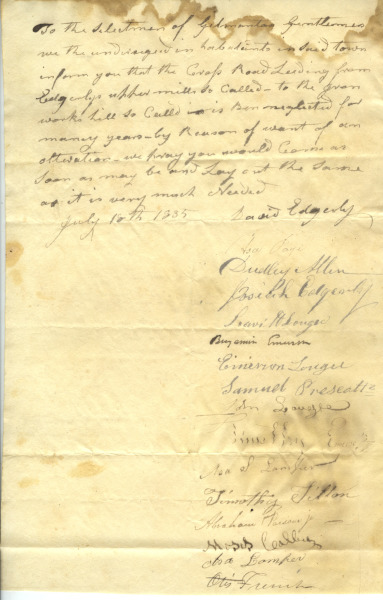 To the Selectmen of Gilmanton Gentlemen
we the undersigned inhabitants in said town
inform you that the Cross Road Leading from
Edgerlys upper mills so Called to the Iron
works hill so Culld is Ben neglected for
maney years by Reason of want of an
olteration we pray you would Come as
soon as may be and Lay out the Same
as it is very much Needed
July 10th 1835 David Edgerly
Dudley Allen
Joseph Edgerly
Benjamin Emerson
Emerson
Samuel Prescott
John Dougee
Timothy
Asa S Lamper
Timothy Tilton
Abraham
Moses
Asa Lamper
Otis French